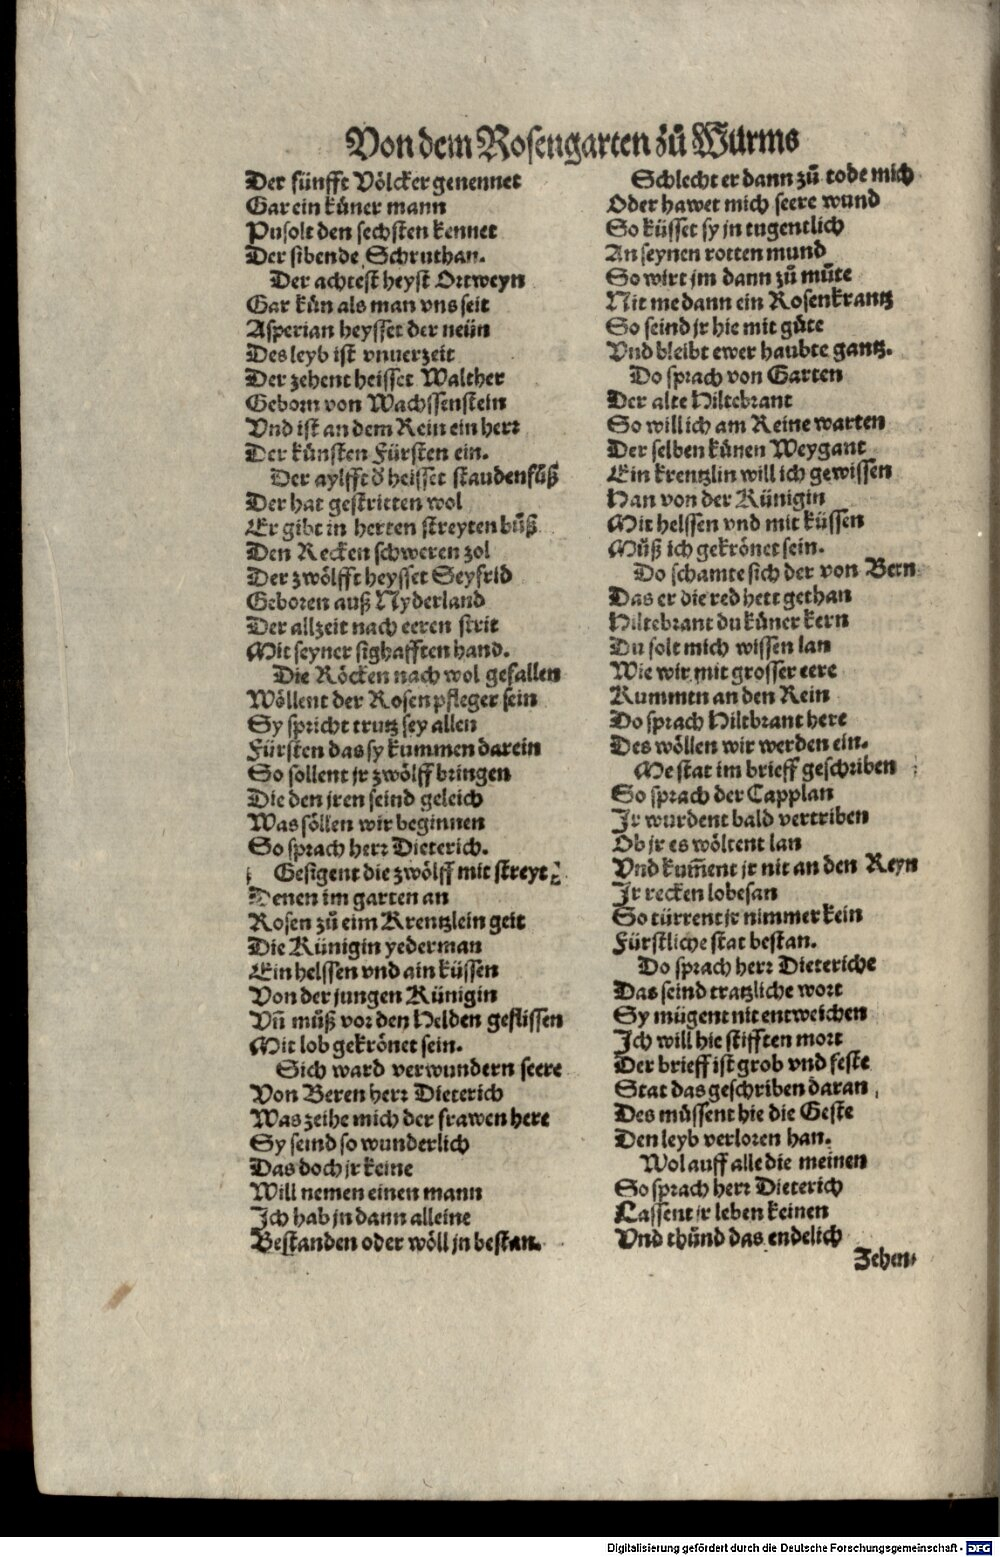 Von dem Rosengarten zů Wurms
Der fünfft Völcker genennet
Gar ein küner mann
Pusolt den sechsten kennet
Der sibende Schruthan.
Der achtest heyst Ortweyn
Gar kün als man vns seit
Asperian heysset der neün
Des leyb ist vnuerzeit
Der zehent heisset Walther
Geborn von Wachssenstein
Vnd ist an dem Rein ein herr
Der künsten Fürsten ein.
Der aylfft d᷑ heisset staudenfůß
Der hat gestritten wol
Er gibt in herten streyten bůß
Den Recken schweren zol
Der zwölfft heysset Seyfrid
Geboren auß Nyderland
Der allzeit nach eeren strit
Mit seyner sighafften hand.
Die Röcken nach wol gefallen
Wöllent der Rosen pfleger sein
Sy spricht trutz sey allen
Fürsten das sy kummen darein
So sollent jr zwölff bringen
Die den jren seind geleich
Was söllen wir beginnen
So sprach herr Dieterich.
Gesigent die zwölff mit streyt
Denen im garten an
Rosen zů eim Krentzlein geit
Die Künigin yederman
Ein helssen vnd ain küssen
Von der jungen Künigin
Vn̄ můß vor den Helden geflissen
Mit lob gekrönet sein.
Sich ward verwundern seere
Von Beren herr Dieterich
Was zeihe mich der frawen here
Sy seind so wunderlich
Das doch jr keine
Will nemen einen mann
Ich hab jn dann alleine
Bestanden oder wöll jn bestan.
Schlecht er dann zů tode mich
Oder hawet mich seere wund
So küsset sy jn tugentlich
An seynen rotten mund
So wirt jm dann zů můte
Nit me dann ein Rosenkrantz
So seind jr hie mit güte
Vnd bleibt ewer haubte gantz.
Do sprach von Garten
Der alte Hiltebrant
So will ich am Reine warten
Der selben künen Weygant
Ein krentzlin will ich gewissen
Han von der Künigin
Mit helssen vnd mit küssen
Můß ich gekrönet sein.
Do schamte sich der von Bern
Das er die red hett gethan
Hiltebrant du küner kern
Du solt mich wissen lan
Wie wir mit grosser eere
Kummen an den Rein
Do sprach Hiltbrant here
Des wöllen wir werden ein.
Me stat im brieff geschriben
So sprach der Capplan
Ir wurdent bald vertriben
Ob jr es wöltent lan
Vnd kum̄ent jr nit an den Reyn
Ir recken lobesan
So türrent jr nimmer kein
Fürstliche stat bestan.
Do sprach herr Dieteriche
Das seind tratzliche wort
Sy mügent nit entweichen
Ich will hie stifften mort
Der brieff ist grob vnd feste
Stat das geschriben daran
Des müssent hie die Geste
Den leyb verloren han.
Wol auff alle die meinen
So sprach herr Dieterich
Lassent jr leben keinen
Vnd thůnd das endelich
Zehen
Digitalisierung gefördert durch die Deutsche Forschungsgemeinschaft - DFG